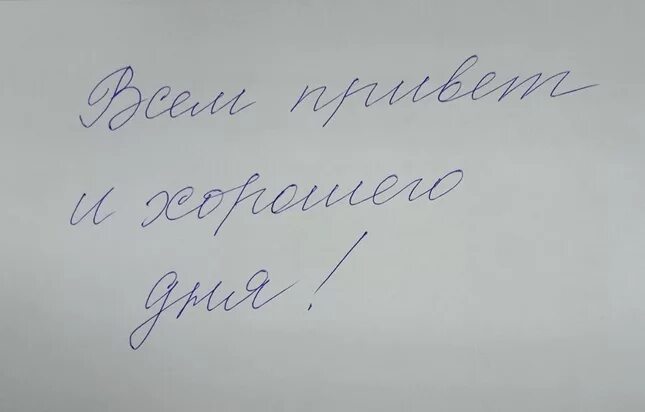 Всем привет
и хорошего
дня!